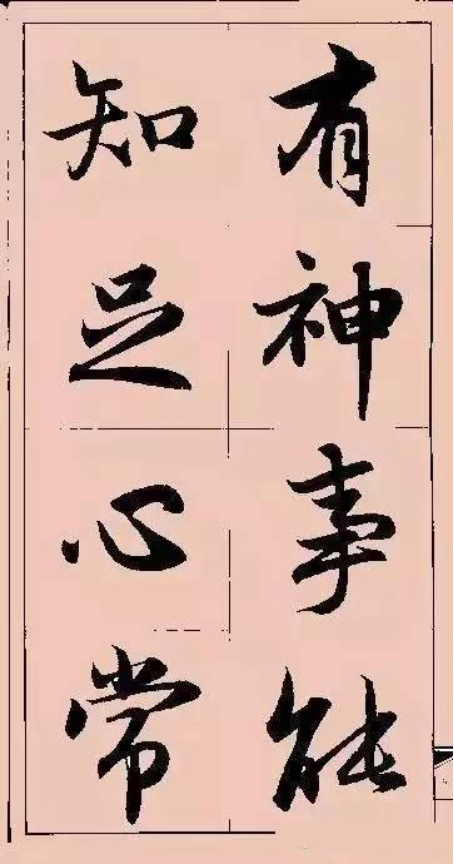 有神事能
知足心常